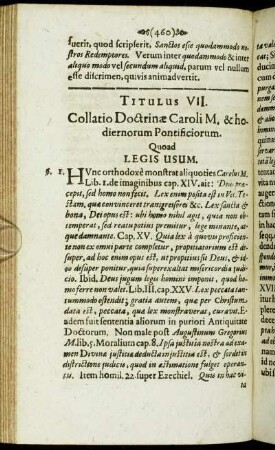 (460)
fuerit, quod scripserit, Sanctos esse quodammodo no-
stros Redemptores. Verum inter quodammodo & inter
aliquo modo vel secundum aliquid, parum vel nullum
esse discrimen, quivis animadvertit.
TITULUS VII.
Collatio Doctrinæ Caroli M, & ho-
diernorum Pontificiorum.
Quoad
LEGIS USUM.
§. 1. HUnc orthodoxè monstrat aliquoties Carolus M.
Lib. 1. de imaginibus cap. XIV. ait: Deus præ-
cepit, sed homo non fecit. Lex enim posita est in Vet. Te-
stam, quæ convinceret transgressores &c. Lex sancta &
bona, Dei opus est: ubi homo nihil agit, quia non ob-
temperat, sed reatu potius premitur, lege minante, at-
que damnante. Cap. XV. Quia lex à quovis proficien-
te non ex omni parte completur, propitiatorium est di-
super, ad hoc enim opus est, ut propitietur Deus, & id-
eo desuper ponitur, quia superexaltat misericordia judi-
cio. Ibid. Deus jugum legis homini imponit, quod ho-
mo ferre non valet. Lib. III, cap. XXV. Lex peccata tan-
tummodo ostendit; gratia autem, quæ per Christum
data est, peccata, quæ lex monstraverat, curavit. Ea-
dem fuit sententia aliorum in puriori Antiquitate
Doctorum. Non male post Augustinum Gregorius
M. lib. 5. Moralium cap. 8. Ipsa justitia nostra ad exa-
men Divinæ justitiæ deducta injustitia est, & sordet in
districtione judicis, quod in æstimatione fulget operan-
tis. Item homil. 22. super Ezechiel. Quis in hac vi-
ta